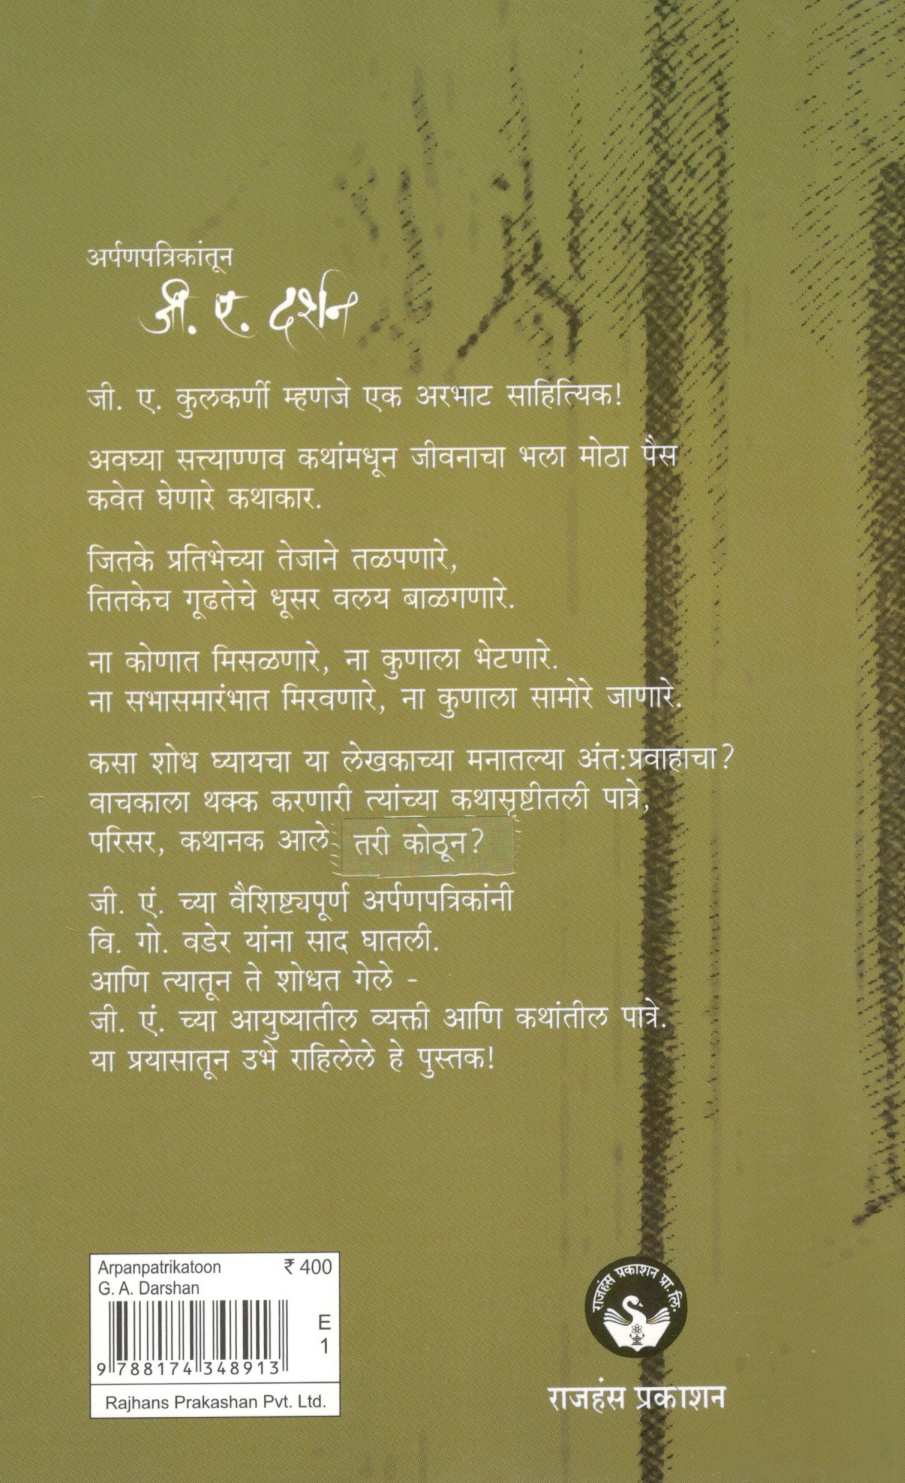 अर्पणपत्रिकांतून
जी. ए. दर्शन
जी. ए. कुलकर्णी म्हणजे एक अरभाट साहित्यिक!
अवघ्या सत्त्याण्णव कथांमधून जीवनाचा भला मोठा पैस
कवेत घेणारे कथाकार.
जितके प्रतिभेच्या तेजाने तळपणारे,
तितकेच गूढतेचे धूसर वलय बाळगणारे.
ना कोणात मिसळणारे, ना कुणाला भेटणारे.
ना सभासमारंभात मिरवणारे, ना कुणाला सामोरे जाणारे.
कसा शोध घ्यायचा या लेखकाच्या मनातल्या अंत:प्रवाहाचा?
वाचकाला थक्क करणारी त्यांच्या कथासृष्टीतली पात्रे,
परिसर, कथानक आले तरी कोठून?
जी. एं. च्या वैशिष्ट्यपूर्ण अर्पणपत्रिकांनी
वि. गो. वडेर यांना साद घातली.
आणि त्यातून ते शोधत गेले -
जी. एं. च्या आयुष्यातील व्यक्ती आणि कथांतील पात्रे.
या प्रयासातून उभे राहिलेले हे पुस्तक!
Arpanpatrikatoon ₹ 400
G. A. Darshan
E
1
9 788174 348913
Rajhans Prakashan Pvt. Ltd.
राजहंस प्रकाशन प्रा. लि.
राजहंस प्रकाशन